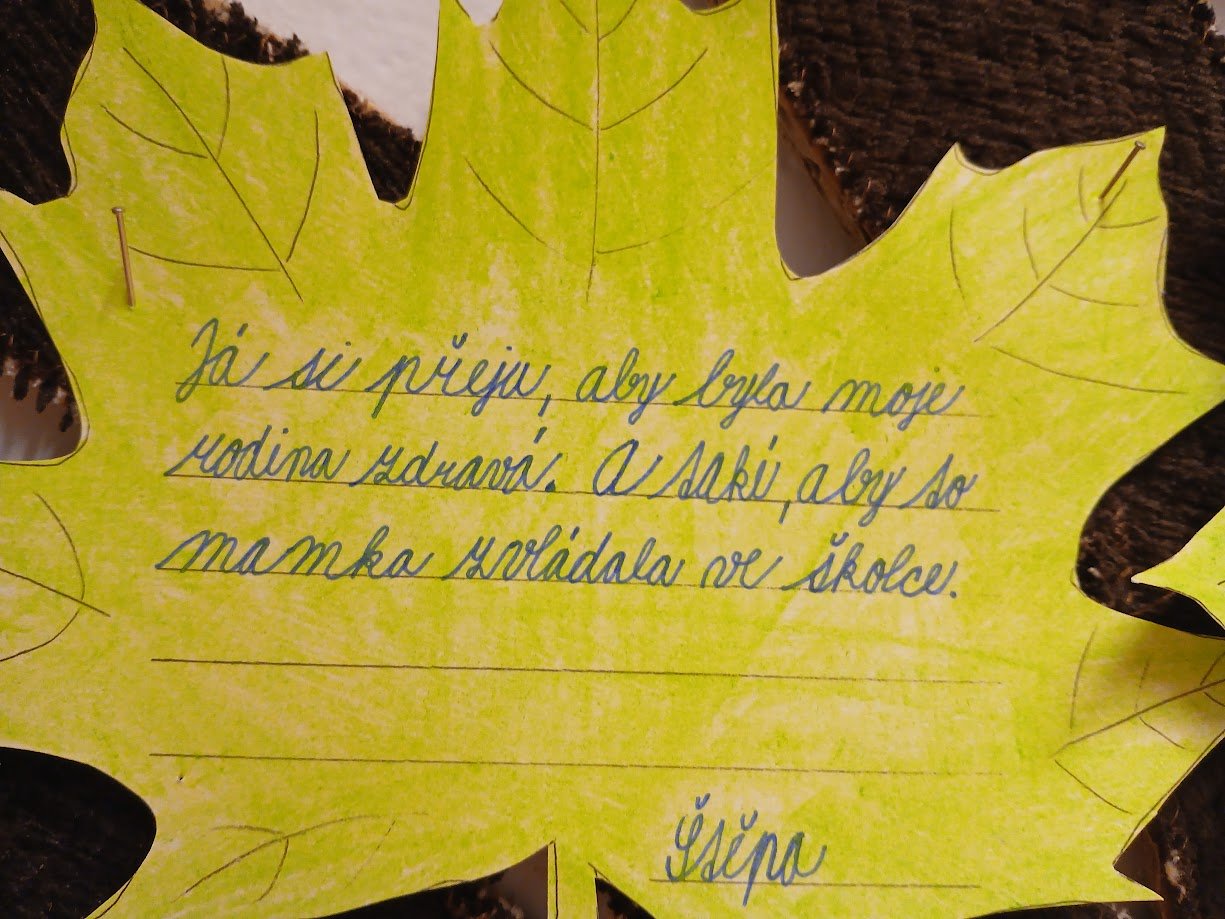 Já si přeju, aby byla moje
rodina zdravá. A takí, aby to
mamka zvládala ve školce.
Štěpa